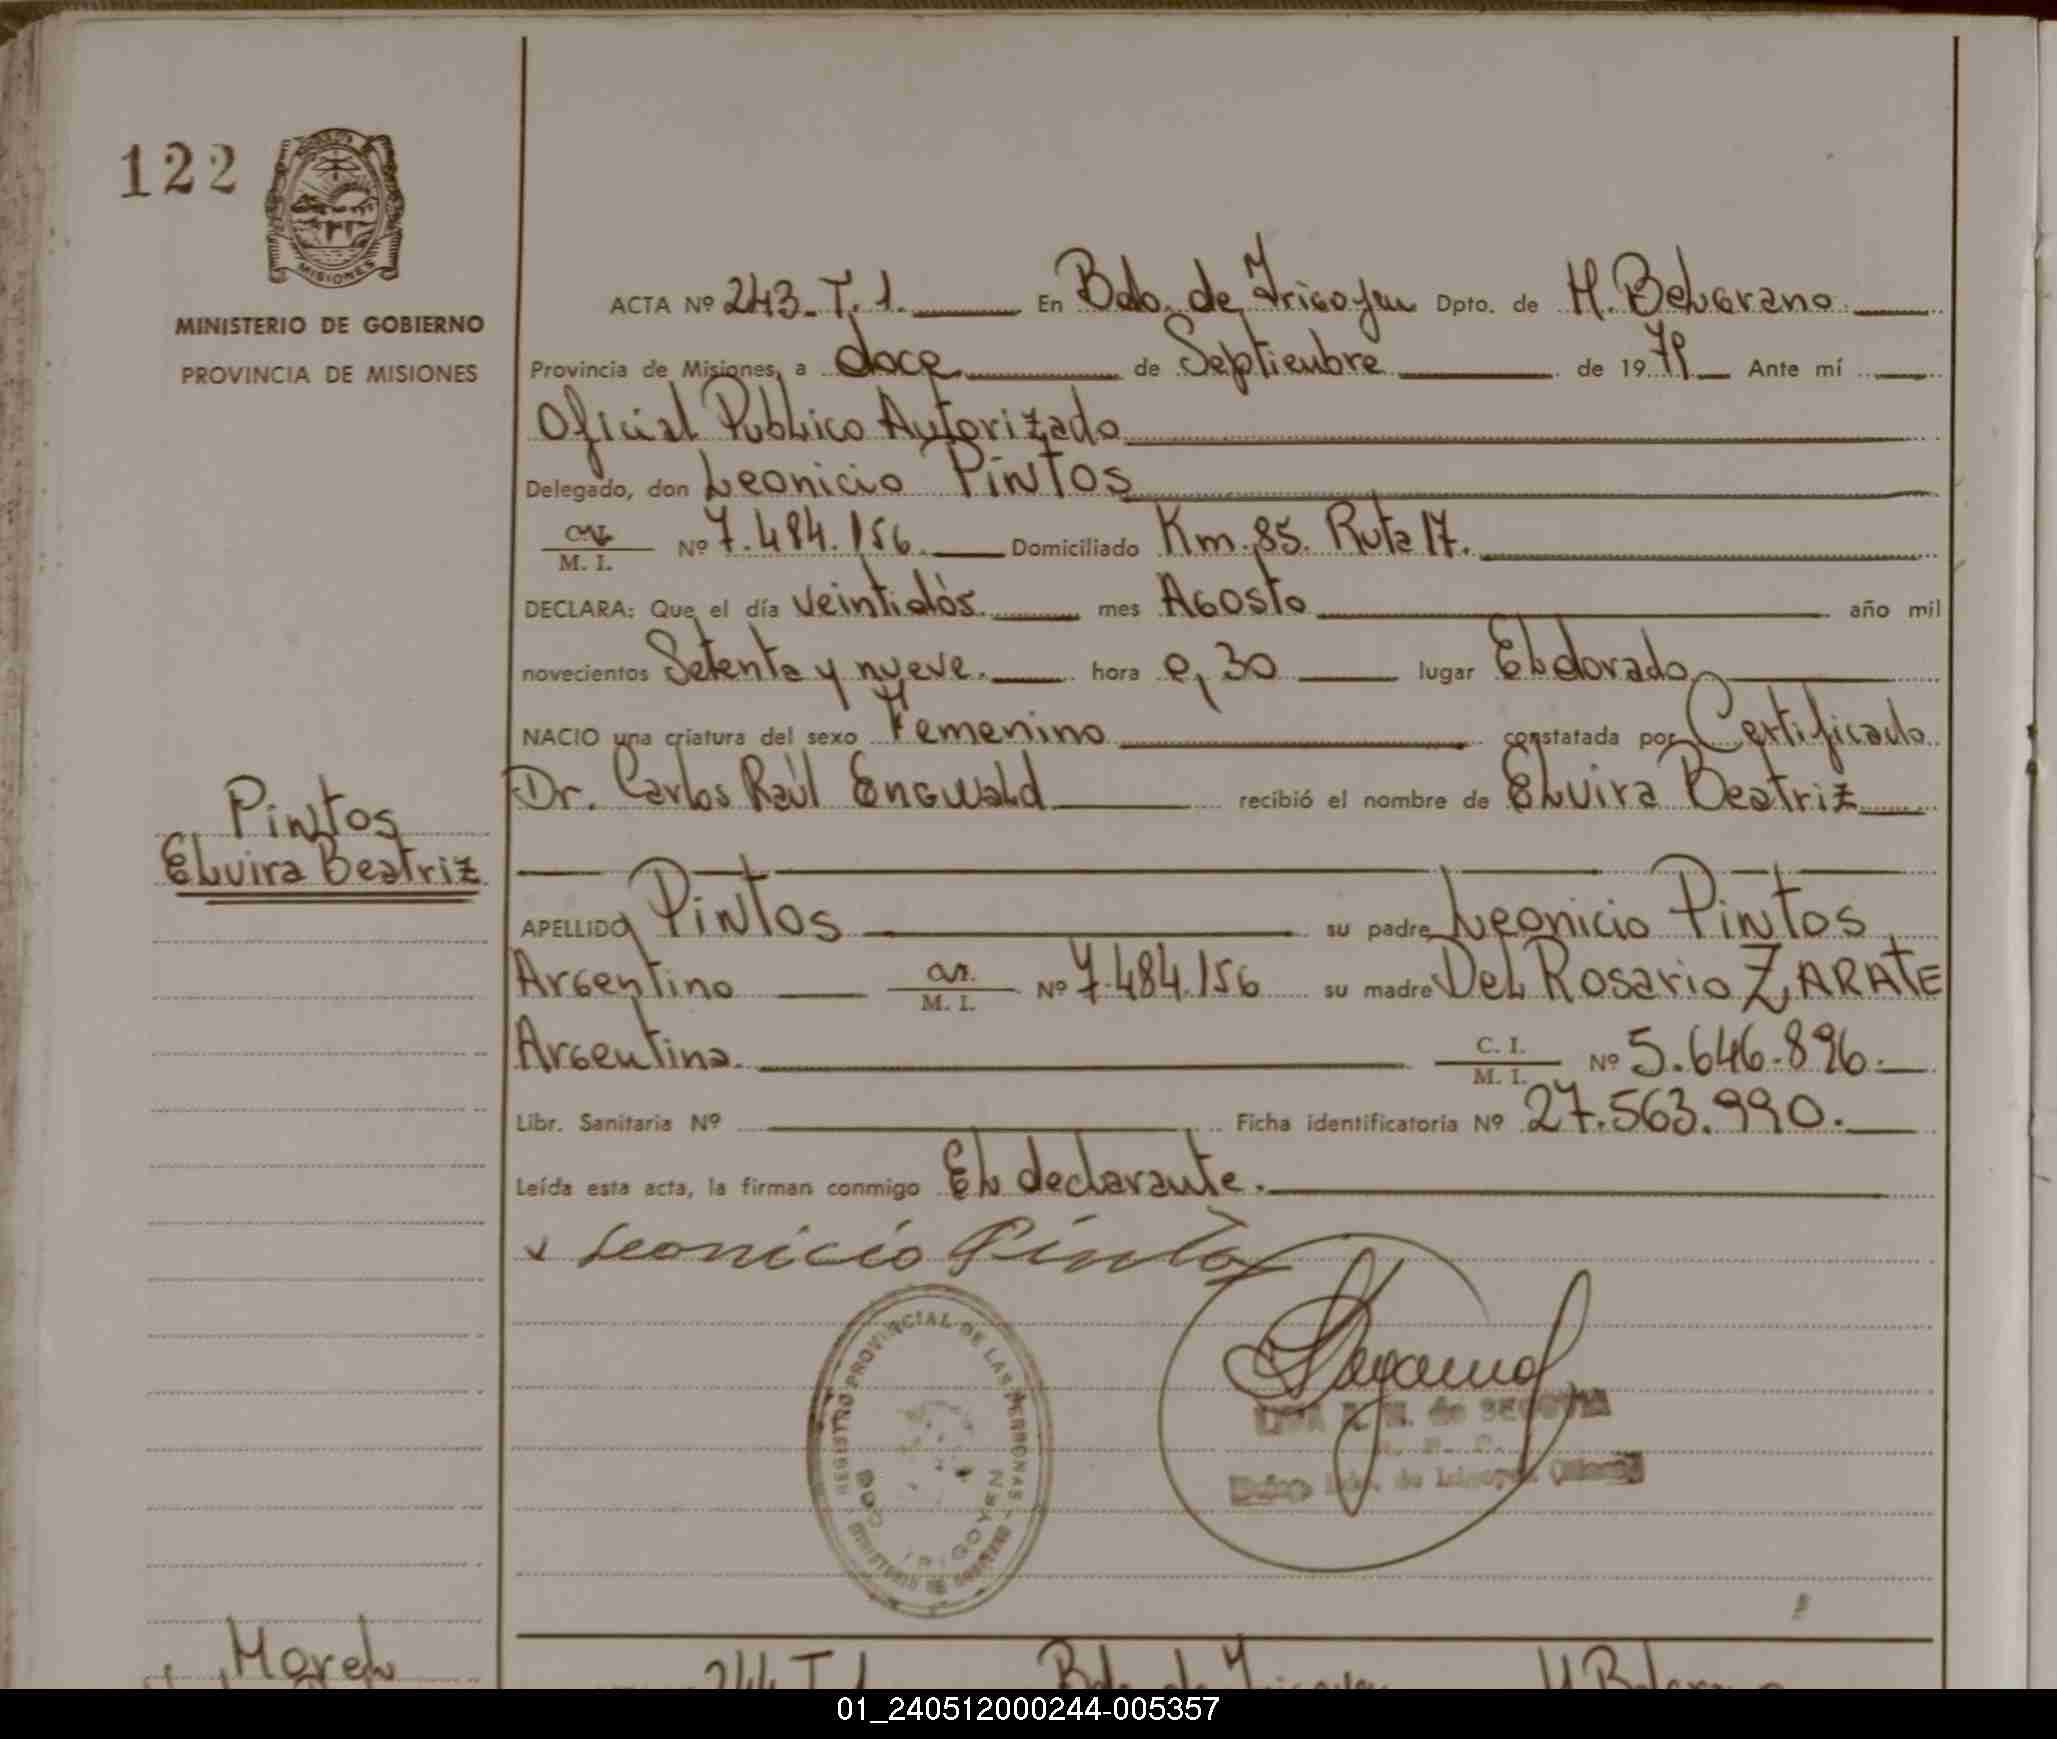 122
MISIONES
MINISTERIO DE GOBIERNO
PROVINCIA DE MISIONES
ACTA Nº 243_T. 1. En Bdo. de Irigoyen Dpto. de M. Belgrano.
Provincia de Misiones, a doce de Septiembre de 1979 Ante mí
Oficial Publico Autorizado
Delegado, don Leonicio Pintos
M. I. Nº 7.484.156. Domiciliado Km. 85. Ruta 17.
DECLARA: Que el día veintidós mes Agosto año mil
novecientos Setenta y nueve. hora 0,30 lugar Eldorado
NACIO una criatura del sexo Femenino constatada por Certificado
Dr. Carlos Raúl Engwald recibió el nombre de Elvira Beatriz
Pintos
Elvira Beatriz
APELLIDO Pintos su padre Leonicio Pintos
Argentino M. I. Nº 7.484.156 su madre Del Rosario ZARATE
Argentina. C. I. M. I. Nº 5.646.896.
Libr. Sanitaria Nº Ficha identificatoria Nº 27.563.990.
Leída esta acta, la firman conmigo El declarante.
Leonicio Pintos
REGISTRO PROVINCIAL DE LAS PERSONAS
BDO. IRIGOYEN
MINISTERIO DE GOBIERNO
de SEGOVIA
Morel
244 T 1 Bdo de Irigoyen M Belgrano
01_240512000244-005357